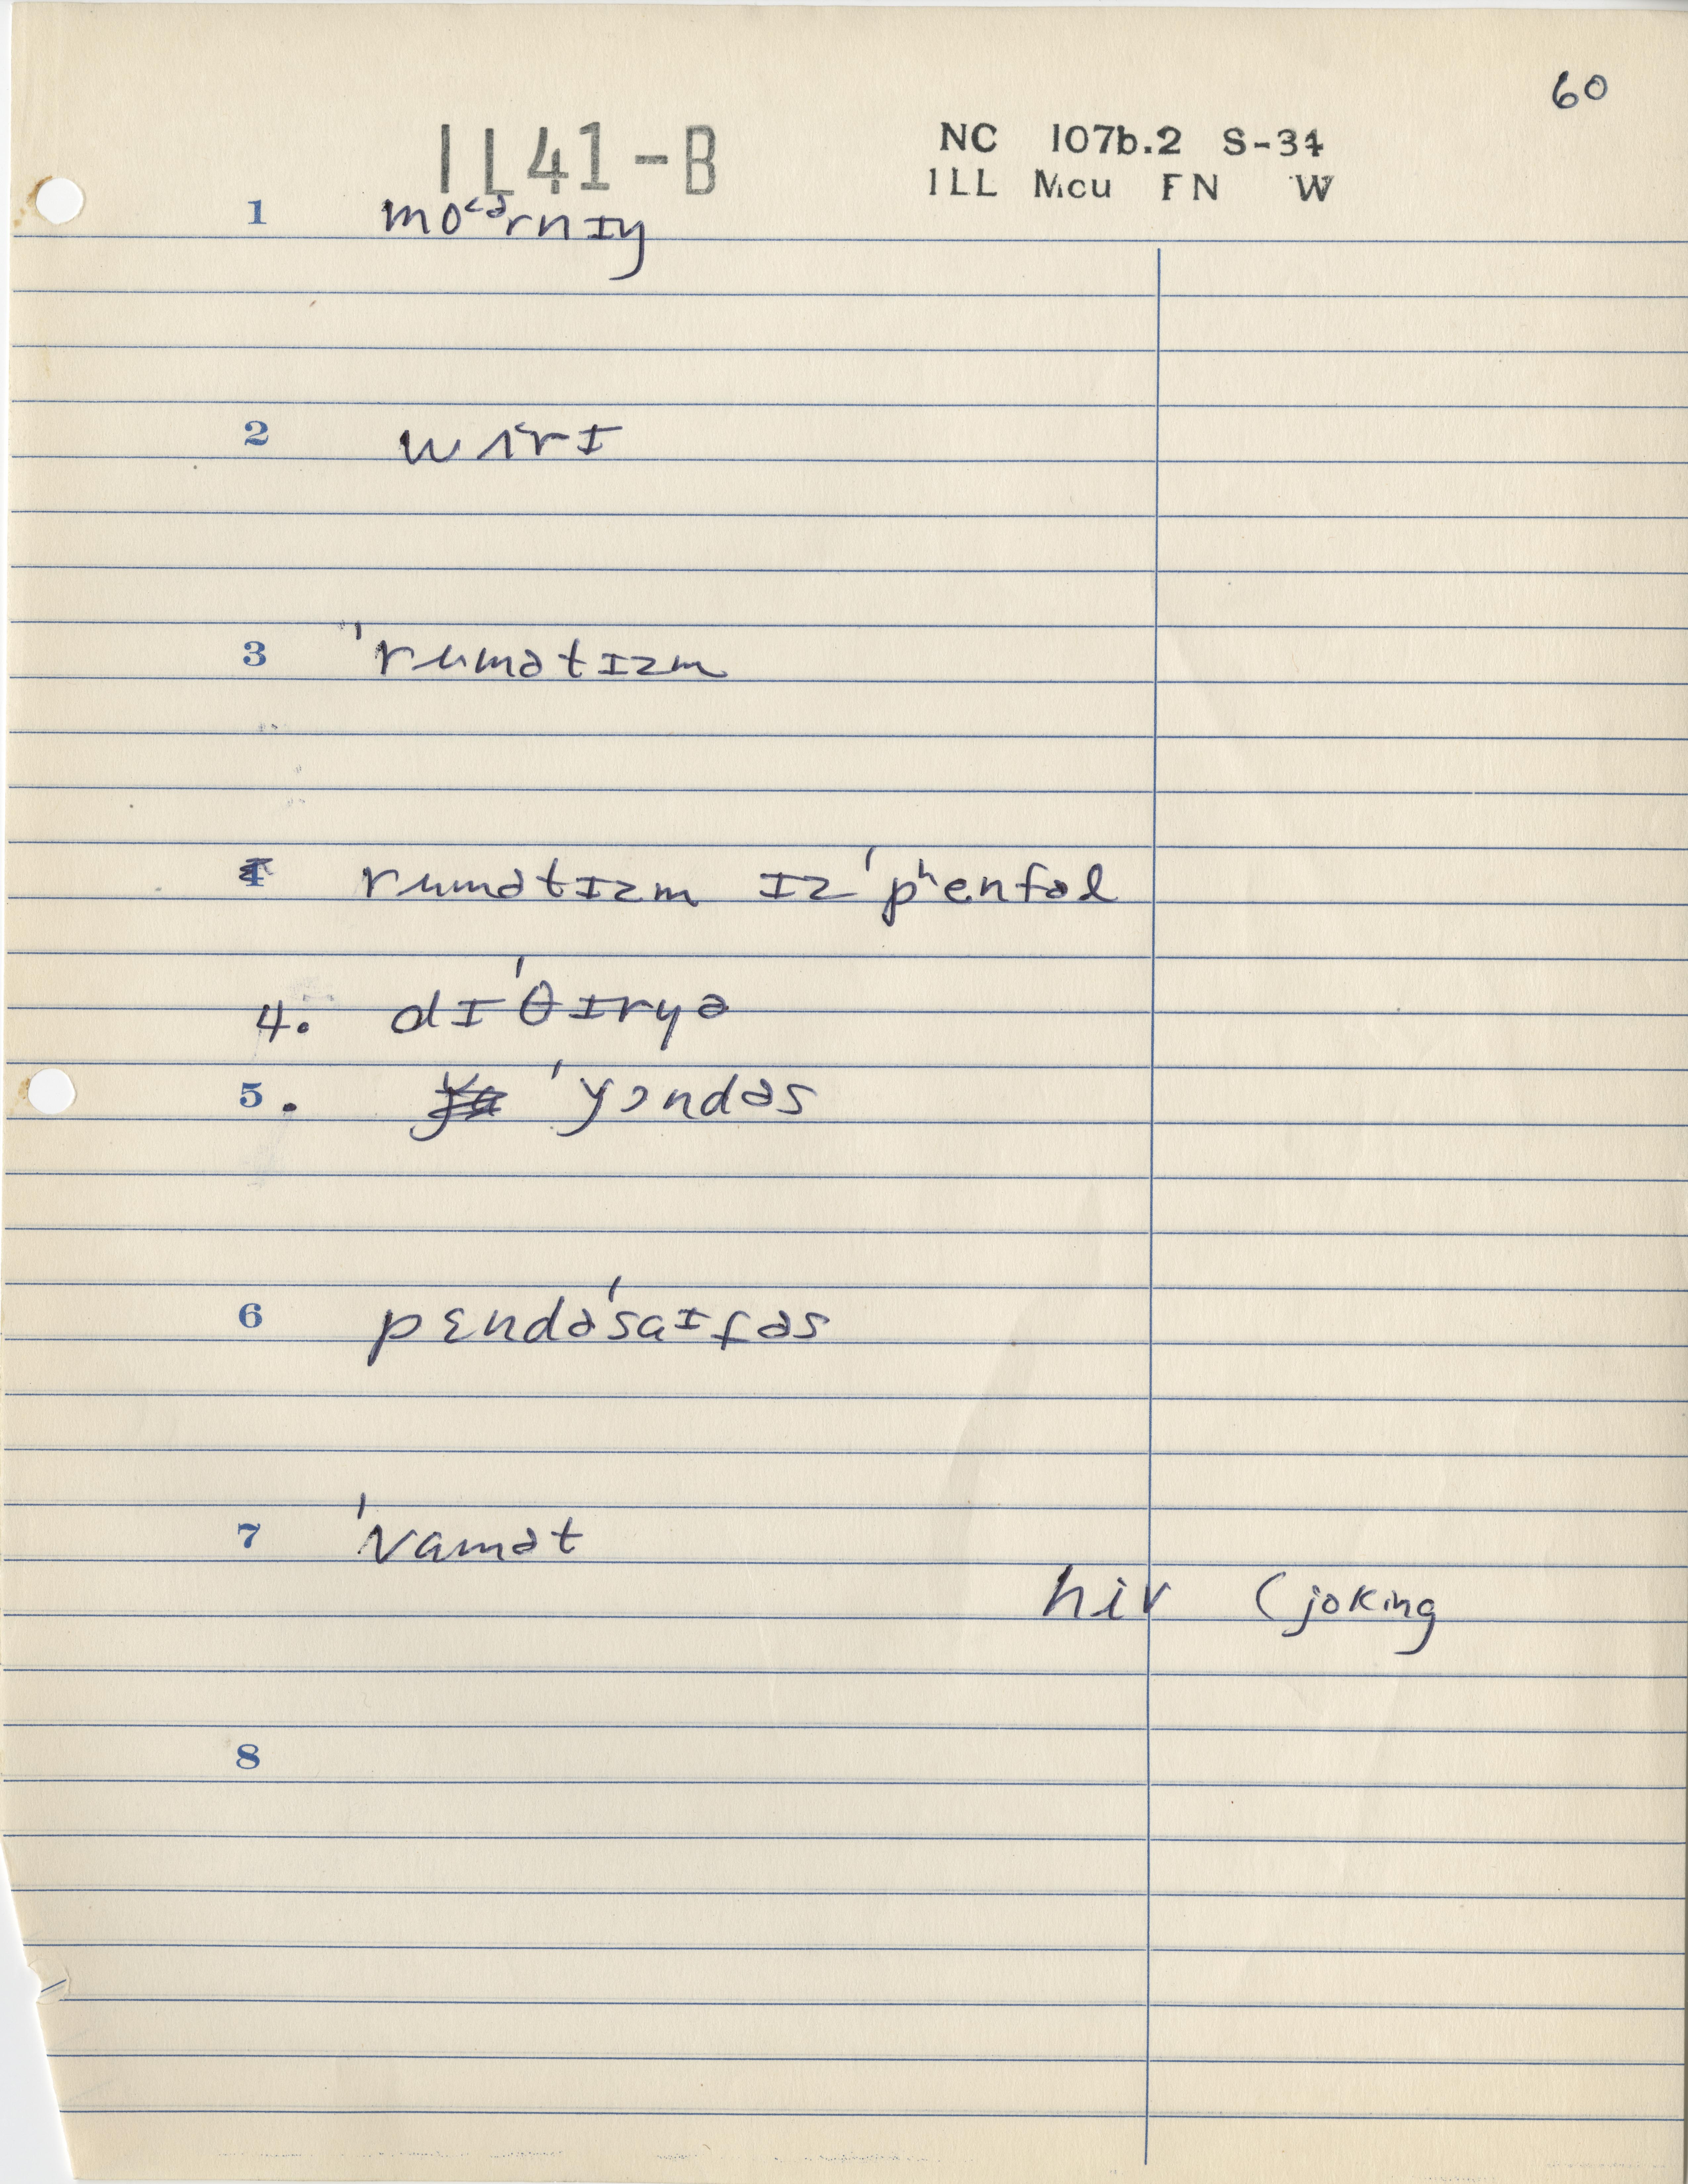 60
IL41-B
NC 107b.2 S-34
ILL Mcu FN W
1 mo<ərnɪy
2 wɪrɪ
3 'rumətɪzm
4 rumətɪzm ɪz 'pʰenfəl
4. dɪ'θɪryə
5. 'yɔndəs
6 pɛndə'saɪfəs
7 'vamət
hiv (joking
8